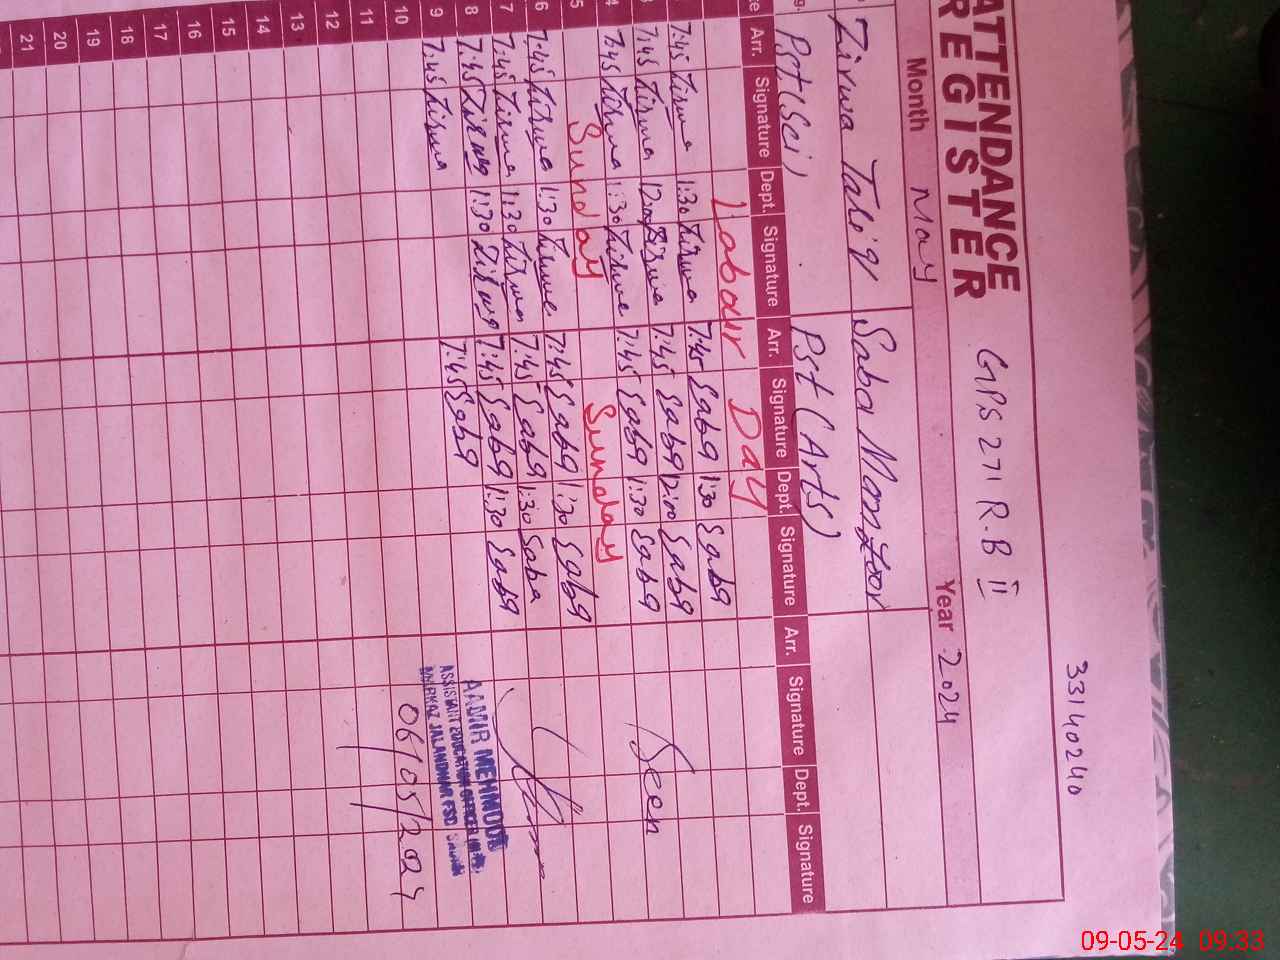 33140240
ATTENDANCE GPS 271 R.B II
REGISTER
Month May Year 2024
Zirwa Tariq Saba Manzoor
Pst (Sci) Pst (Arts)
Arr. Signature Dept. Signature Arr. Signature Dept. Signature Arr. Signature Dept. Signature
Labour Day
7:45 Zirwa 1:30 Zirwa 7:45 Saba 1:30 Saba
3 7:45 Zirwa 12:00 Zirwa 7:45 Saba 12:00 Saba
4 7:45 Zirwa 1:30 Zirwa 7:45 Saba 1:30 Saba Seen
5 Sunday Sunday
6 7:45 Zirwa 1:30 Zirwa 7:45 Saba 1:30 Saba
7 7:45 Zirwa 1:30 Zirwa 7:45 Saba 1:30 Saba
8 7:45 Zirwa 1:30 Zirwa 7:45 Saba 1:30 Saba
9 7:45 Zirwa 7:45 Saba
AAMIR MEHMOOD
ASSISTANT EDUCATION OFFICER
MARKAZ JALANDHAR FSD SADAR
10 06/05/2024
11
12
13
14
15
16
17
18
19
20
21
09-05-24 09:33